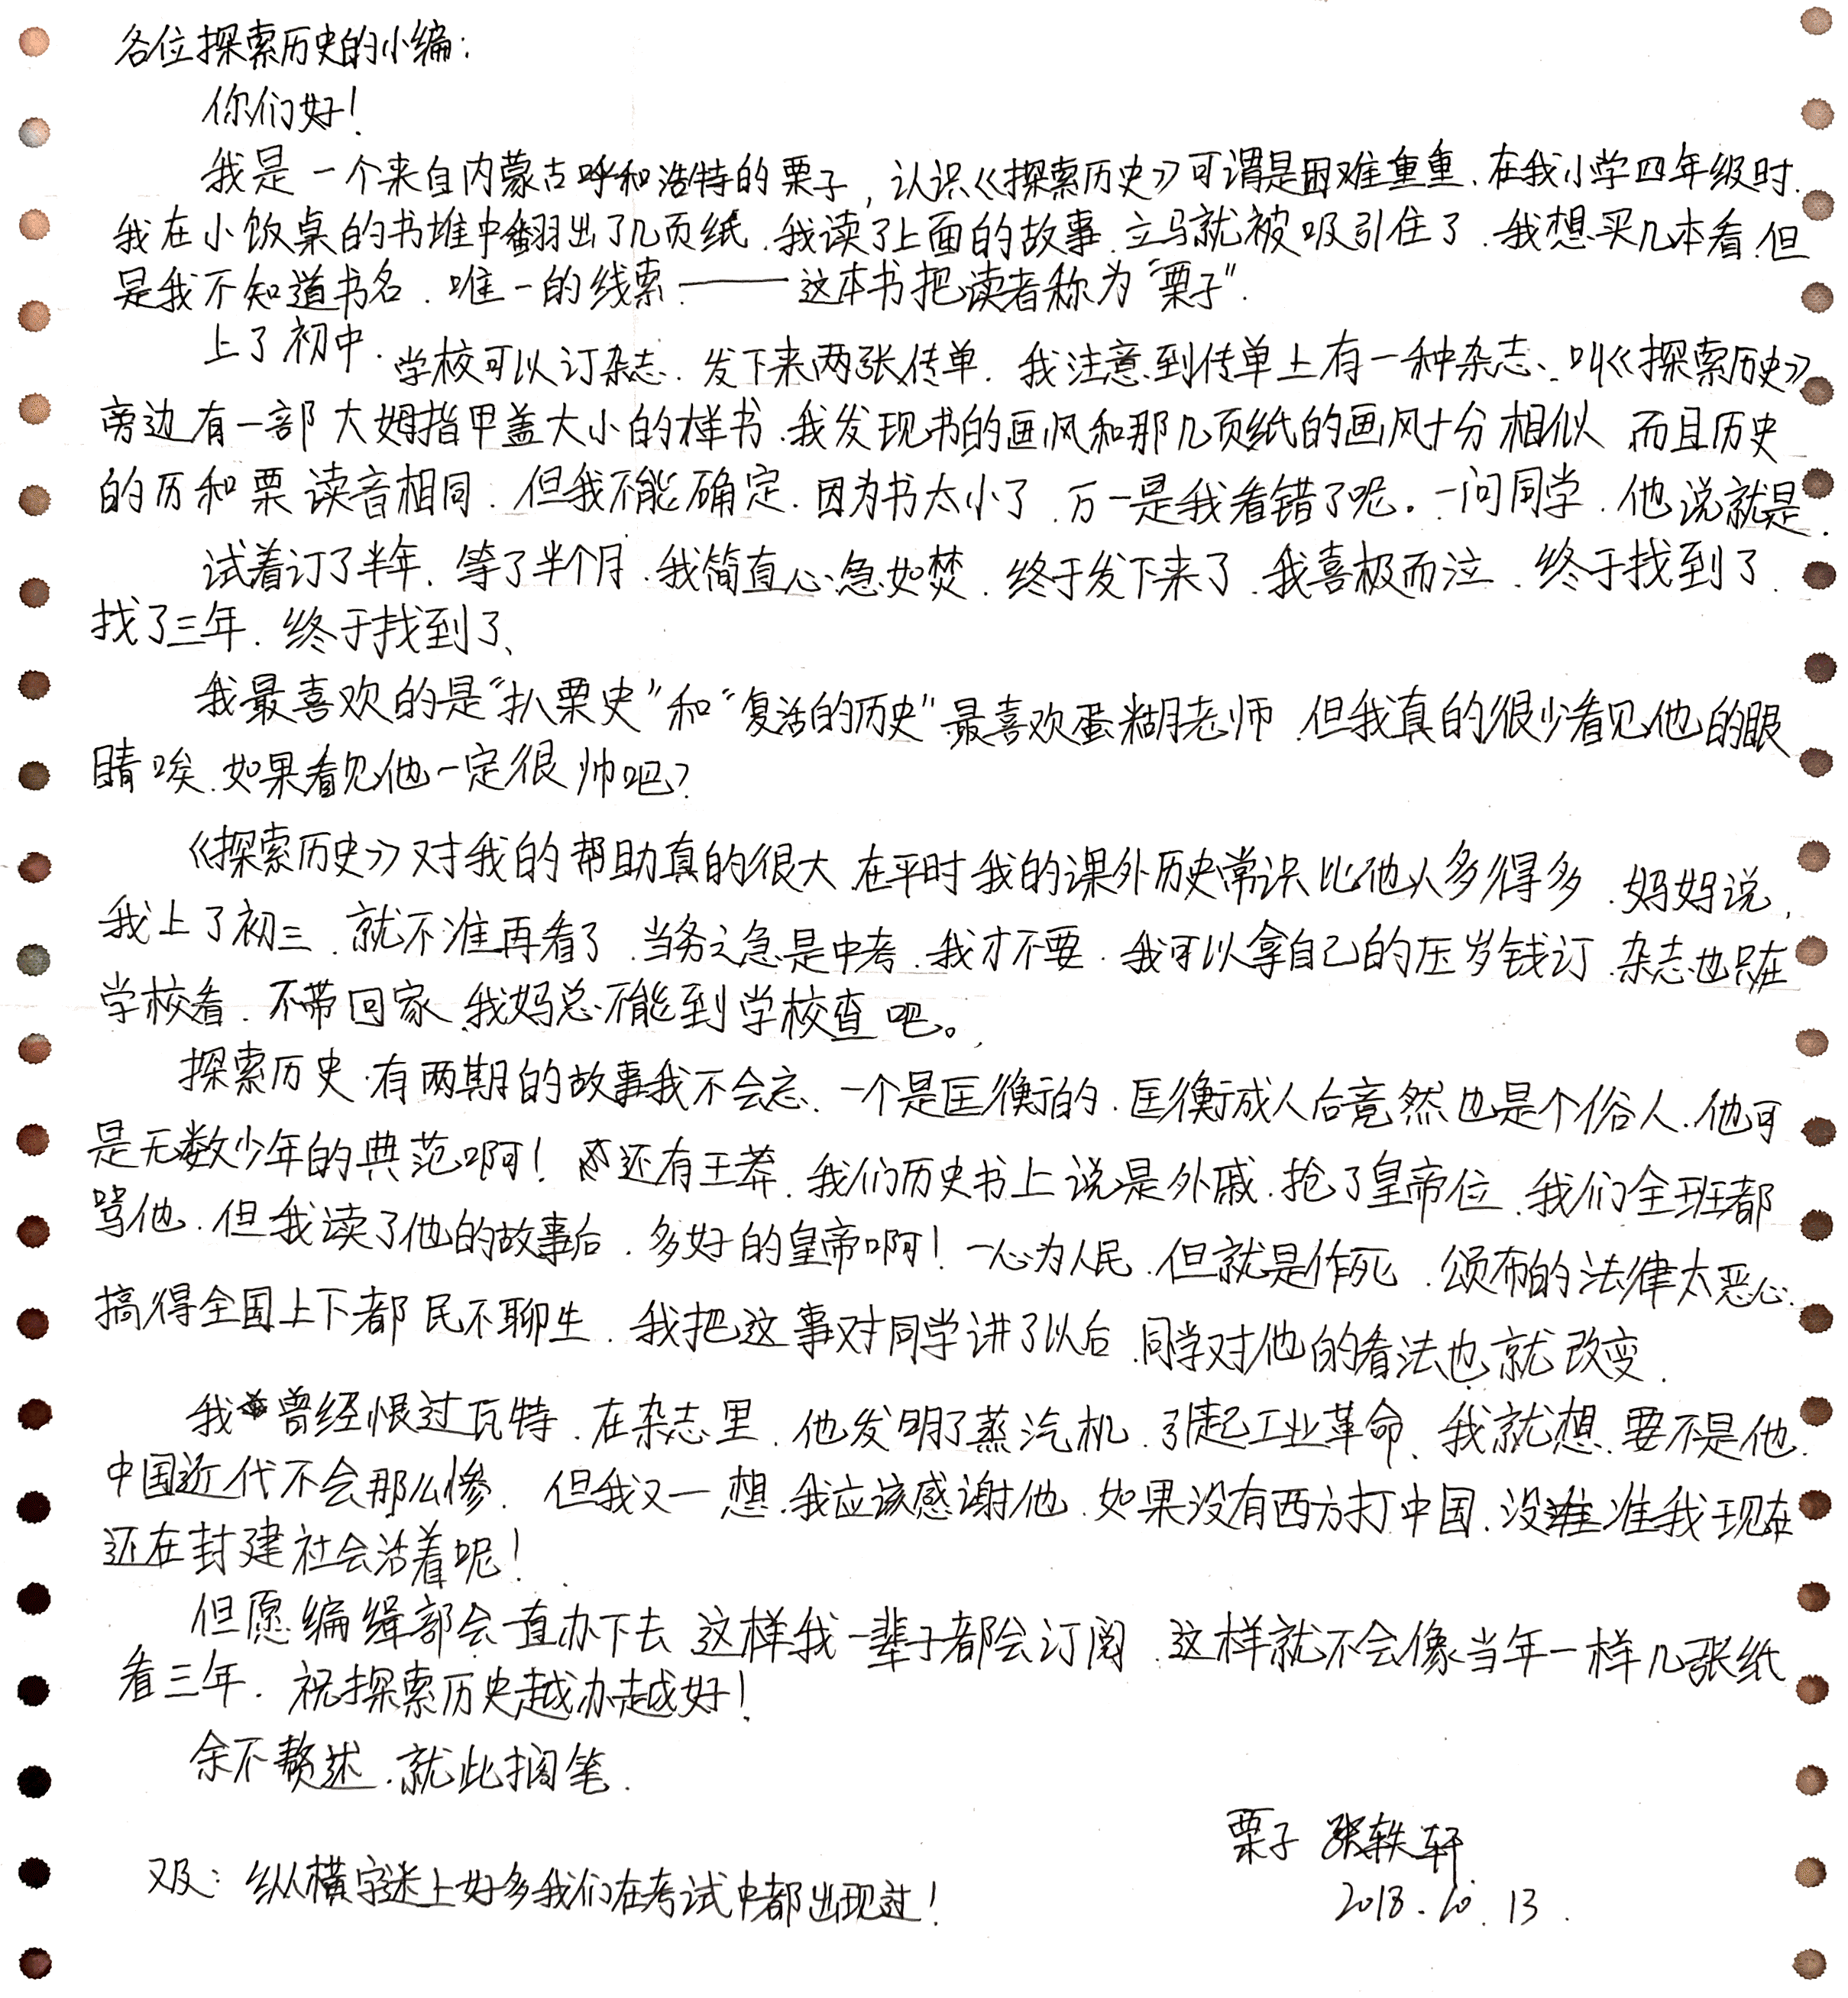 各位探索历史的小编：
你们好！
我是一个来自内蒙古呼和浩特的栗子，认识《探索历史》可谓是困难重重.在我小学四年级时.
我在小饭桌的书堆中翻出了几页纸.我读了上面的故事.立马就被吸引住了.我想买几本看.但
是我不知道书名.唯一的线索——这本书把读者称为“栗子”.
上了初中.学校可以订杂志.发下来两张传单.我注意到传单上有一种杂志、叫《探索历史》
旁边有一部大姆指甲盖大小的样书.我发现书的画风和那几页纸的画风十分相似 而且历史
的历和栗读音相同.但我不能确定.因为书太小了.万一是我看错了呢。一问同学.他说就是.
试着订了半年.等了半个月.我简直心急如焚.终于发下来了.我喜极而泣.终于找到了.
找了三年.终于找到了、
我最喜欢的是“扒栗史”和“复活的历史”最喜欢蛋糊老师.但我真的很少看见他的眼
睛唉.如果看见他一定很帅吧？
《探索历史》对我的帮助真的很大.在平时我的课外历史常识比他人多得多.妈妈说，
我上了初三.就不准再看了.当务之急是中考.我才不要.我可以拿自己的压岁钱订.杂志也只在
学校看.不带回家.我妈总不能到学校查吧。
探索历史.有两期的故事我不会忘、一个是匡衡的.匡衡成人后竟然也是个俗人.他可
是无数少年的典范啊！还有王莽.我们历史书上说是外戚.抢了皇帝位.我们全班都
骂他.但我读了他的故事后.多好的皇帝啊！一心为人民.但就是作死.颁布的法律太恶心.
搞得全国上下都民不聊生.我把这事对同学讲了以后.同学对他的看法也就改变.
我曾经恨过瓦特.在杂志里.他发明了蒸汽机.引起工业革命、我就想.要不是他.
中国近代不会那么惨.但我又一想.我应该感谢他.如果没有西方打中国.没准我现在
还在封建社会活着呢！
但愿编缉部会一直办下去 这样我一辈子都会订阅.这样就不会像当年一样几张纸
看三年.祝探索历史越办越好！
余不赘述.就此搁笔.
栗子 张轶轩
又及：纵横字迷上好多我们在考试中都出现过！
2018.10.13.